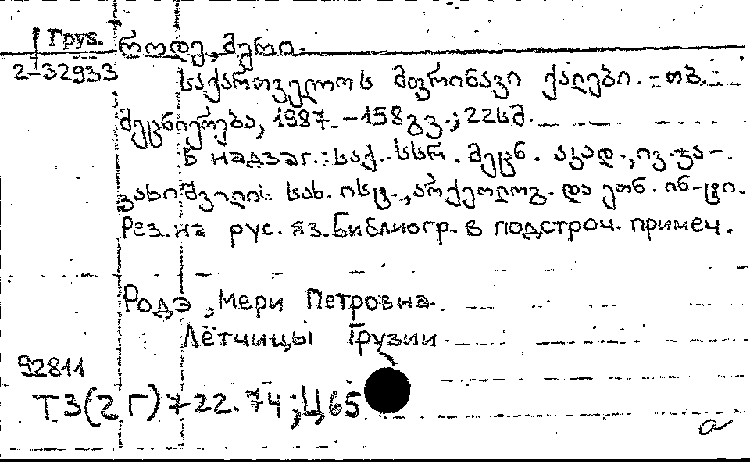 Груз.
2-32933
როდე, მერი.
საქართველოს მფრინავი ქალები. - თბ.:
მეცნიერება, 1987. - 158 გვ.; 22 სმ.
В надзаг.: საქ. სსრ. მეცნ. აკად., ივ. ჯა-
ვახიშვილის სახ. ისტ., არქეოლოგ. და ეთნ. ინ-ტი.
Рез. на рус. яз. Библиогр. в подстроч. примеч.
Родэ, Мери Петровна.
Лётчицы Грузии
92811
Т3(2Г)722.74; Ц65
а